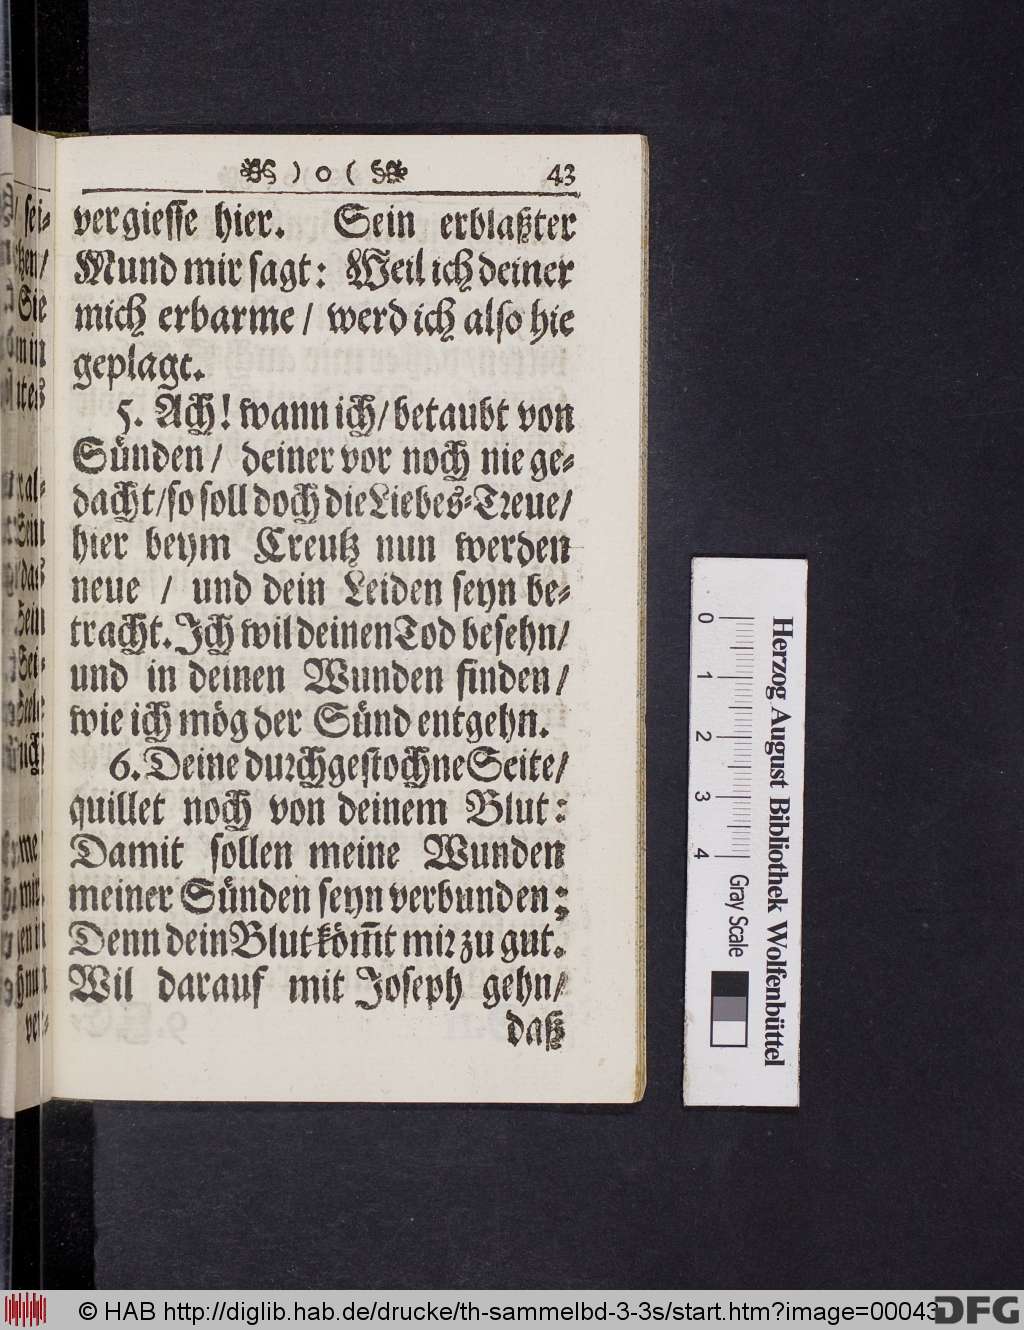 ) o ( 43
vergiesse hier. Sein erblaßter
Mund mir sagt: Weil ich deiner
mich erbarme / werd ich also hie
geplagt.
5. Ach! wann ich/ betaubt von
Sünden / deiner vor noch nie ge-
dacht/ so soll doch die Liebes-Treue/
hier beym Creutz nun werden
neue / und dein Leiden seyn be-
tracht. Ich wil deinen Tod besehn/
und in deinen Wunden finden/
wie ich mög der Sünd entgehn.
6. Deine durchgestochne Seite/
quillet noch von deinem Blut:
Damit sollen meine Wunden
meiner Sünden seyn verbunden:
Denn dein Blut köm̃t mir zu gut.
Wil darauf mit Joseph gehn/
daß
sei-
Sie
0 1 2 3 4 Gray Scale
Herzog August Bibliothek Wolfenbüttel
© HAB http://diglib.hab.de/drucke/th-sammelbd-3-3s/start.htm?image=00043
DFG